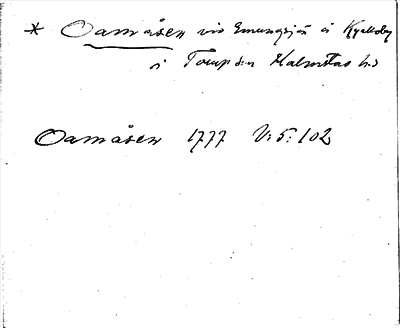 * Oamåsen vid Emungsjö i Kyellsby
i Torup s:n Halmstad h:d
Oamåsen 1777 V: 5: 102